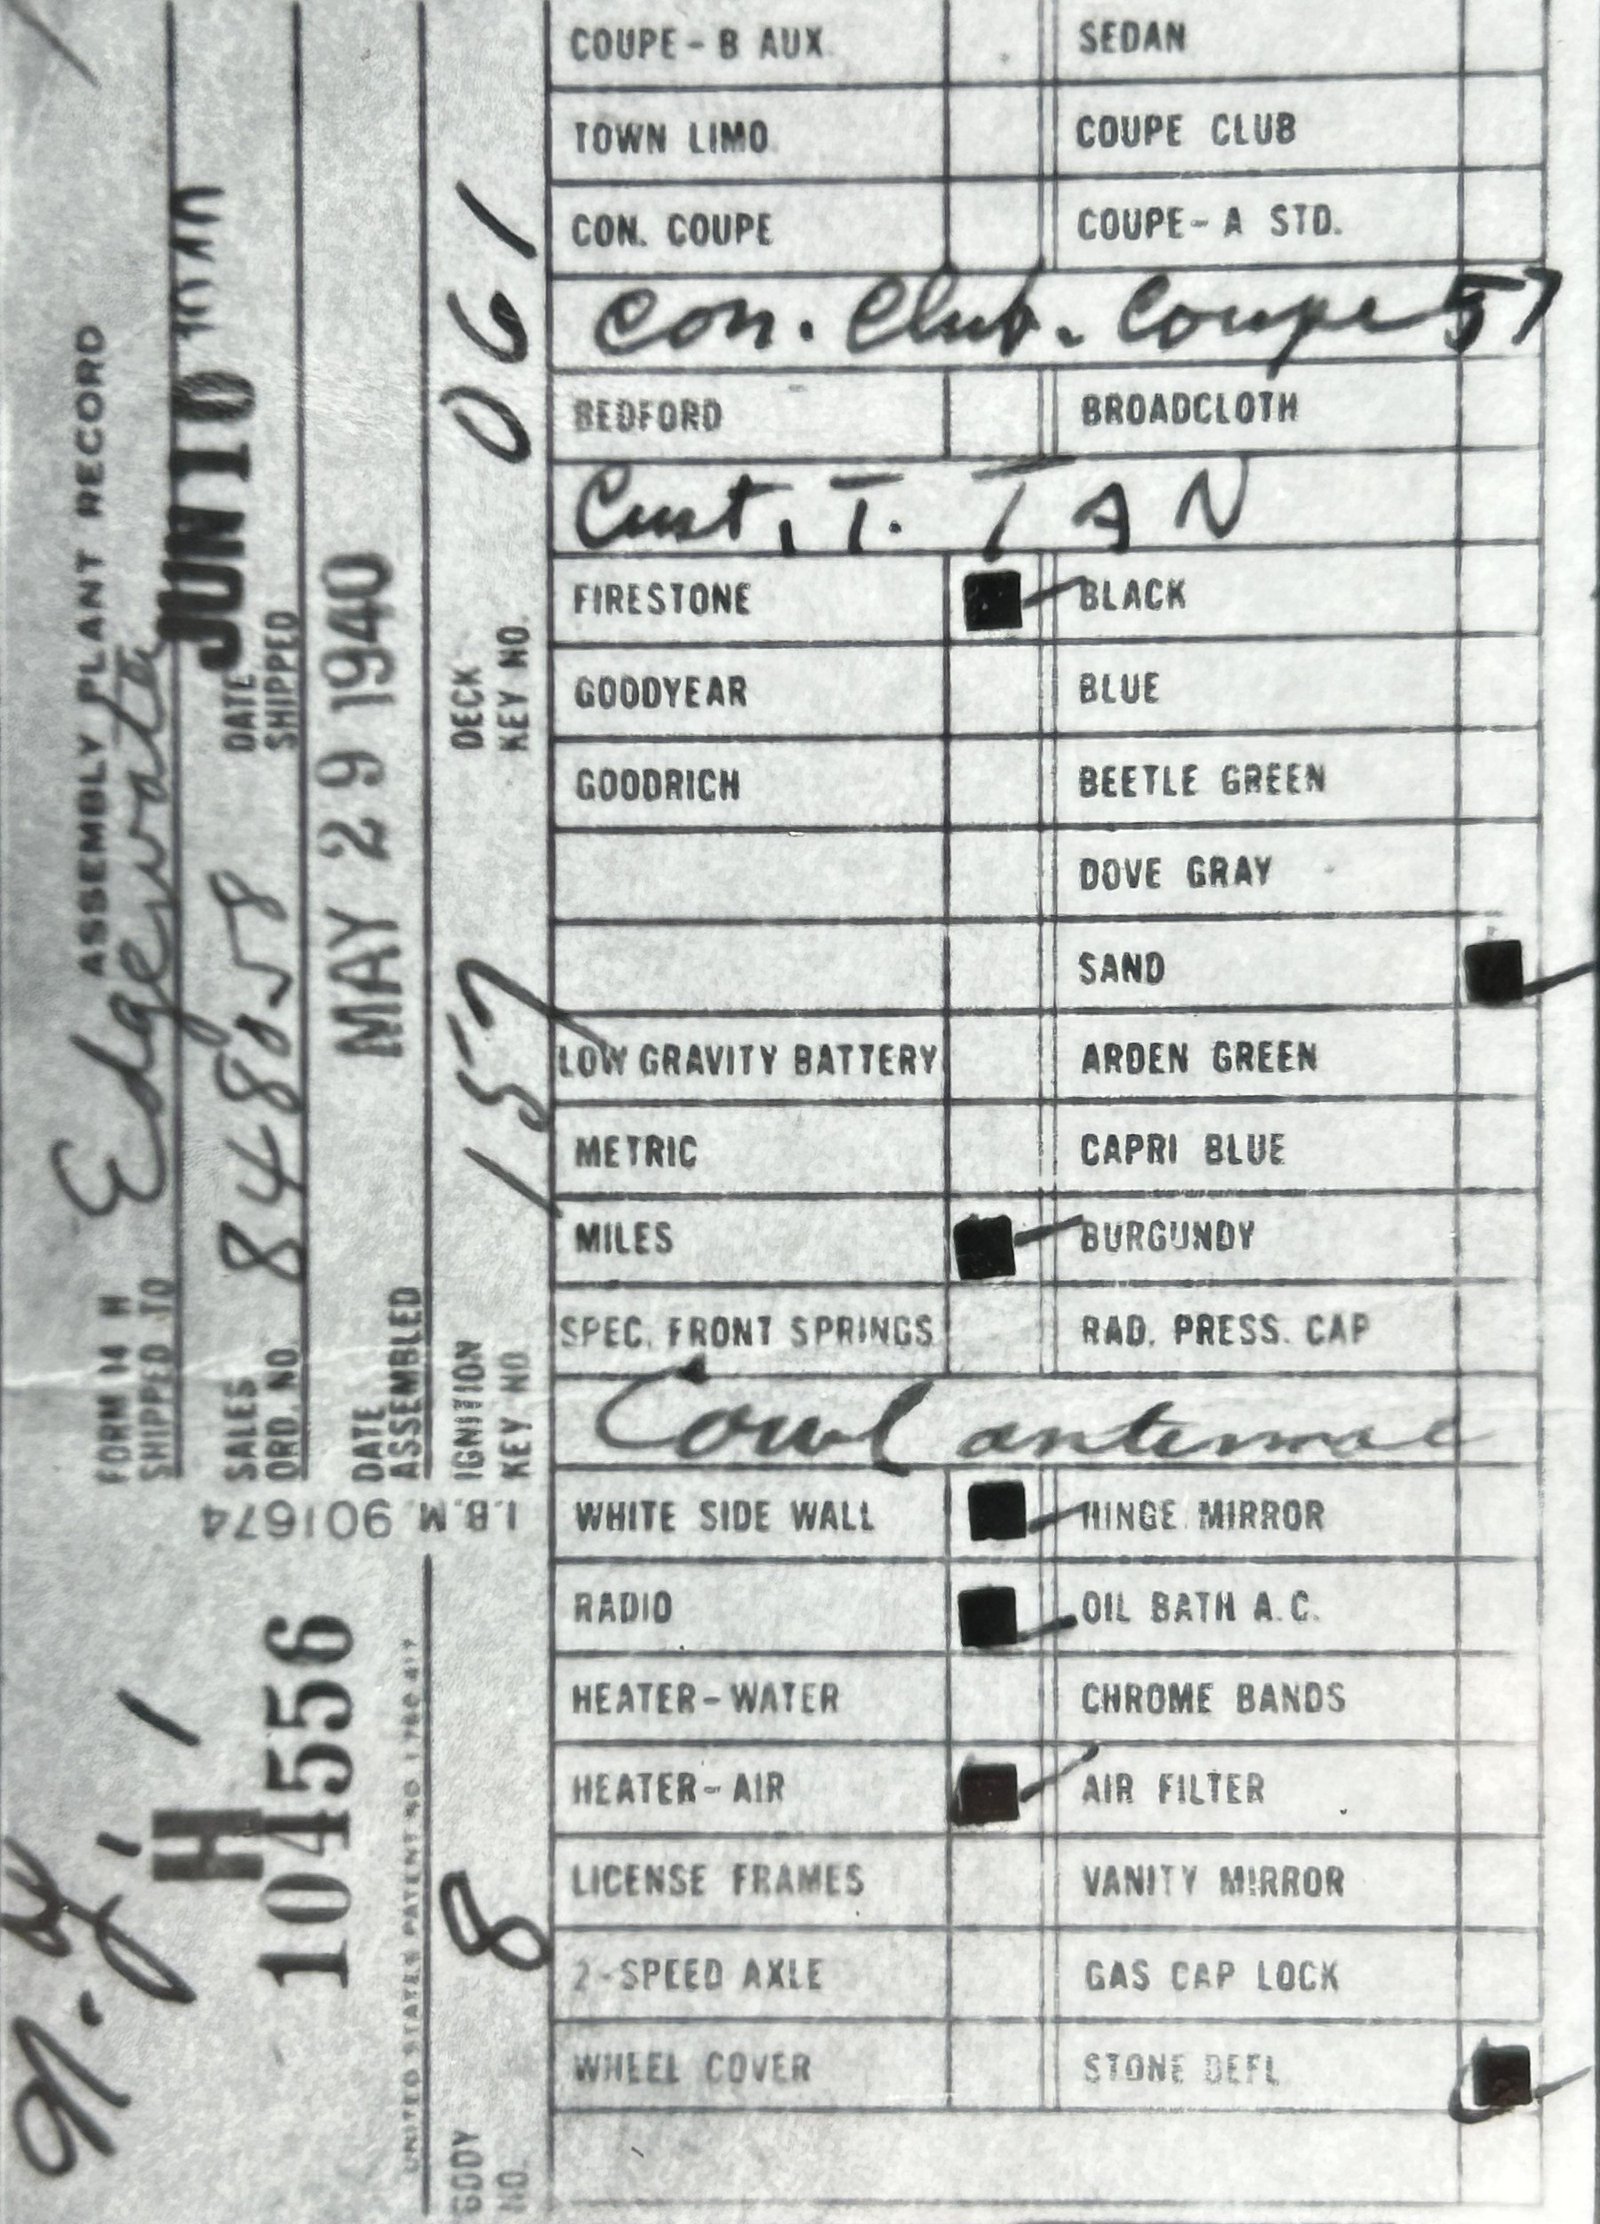 FORM 14 H ASSEMBLY PLANT RECORD
SHIPPED TO Edgewate
SALES ORD. NO. 848058 DATE SHIPPED JUN 10 1940
DATE ASSEMBLED MAY 29 1940
IGNITION KEY NO. 157 DECK KEY NO. 061
I.B.M. 901674
H 1
104556
UNITED STATES PATENT NO
BODY NO. 8
COUPE - B AUX. SEDAN
TOWN LIMO. COUPE CLUB
CON. COUPE COUPE - A STD.
Con. Club. Coupe 57
BEDFORD BROADCLOTH
Cust. T. TAN
FIRESTONE BLACK
GOODYEAR BLUE
GOODRICH BEETLE GREEN
DOVE GRAY
SAND
LOW GRAVITY BATTERY ARDEN GREEN
METRIC CAPRI BLUE
MILES BURGUNDY
SPEC. FRONT SPRINGS RAD. PRESS. CAP
Cowl antennae
WHITE SIDE WALL HINGE MIRROR
RADIO OIL BATH A.C.
HEATER - WATER CHROME BANDS
HEATER - AIR AIR FILTER
LICENSE FRAMES VANITY MIRROR
2-SPEED AXLE GAS CAP LOCK
WHEEL COVER STONE DEFL